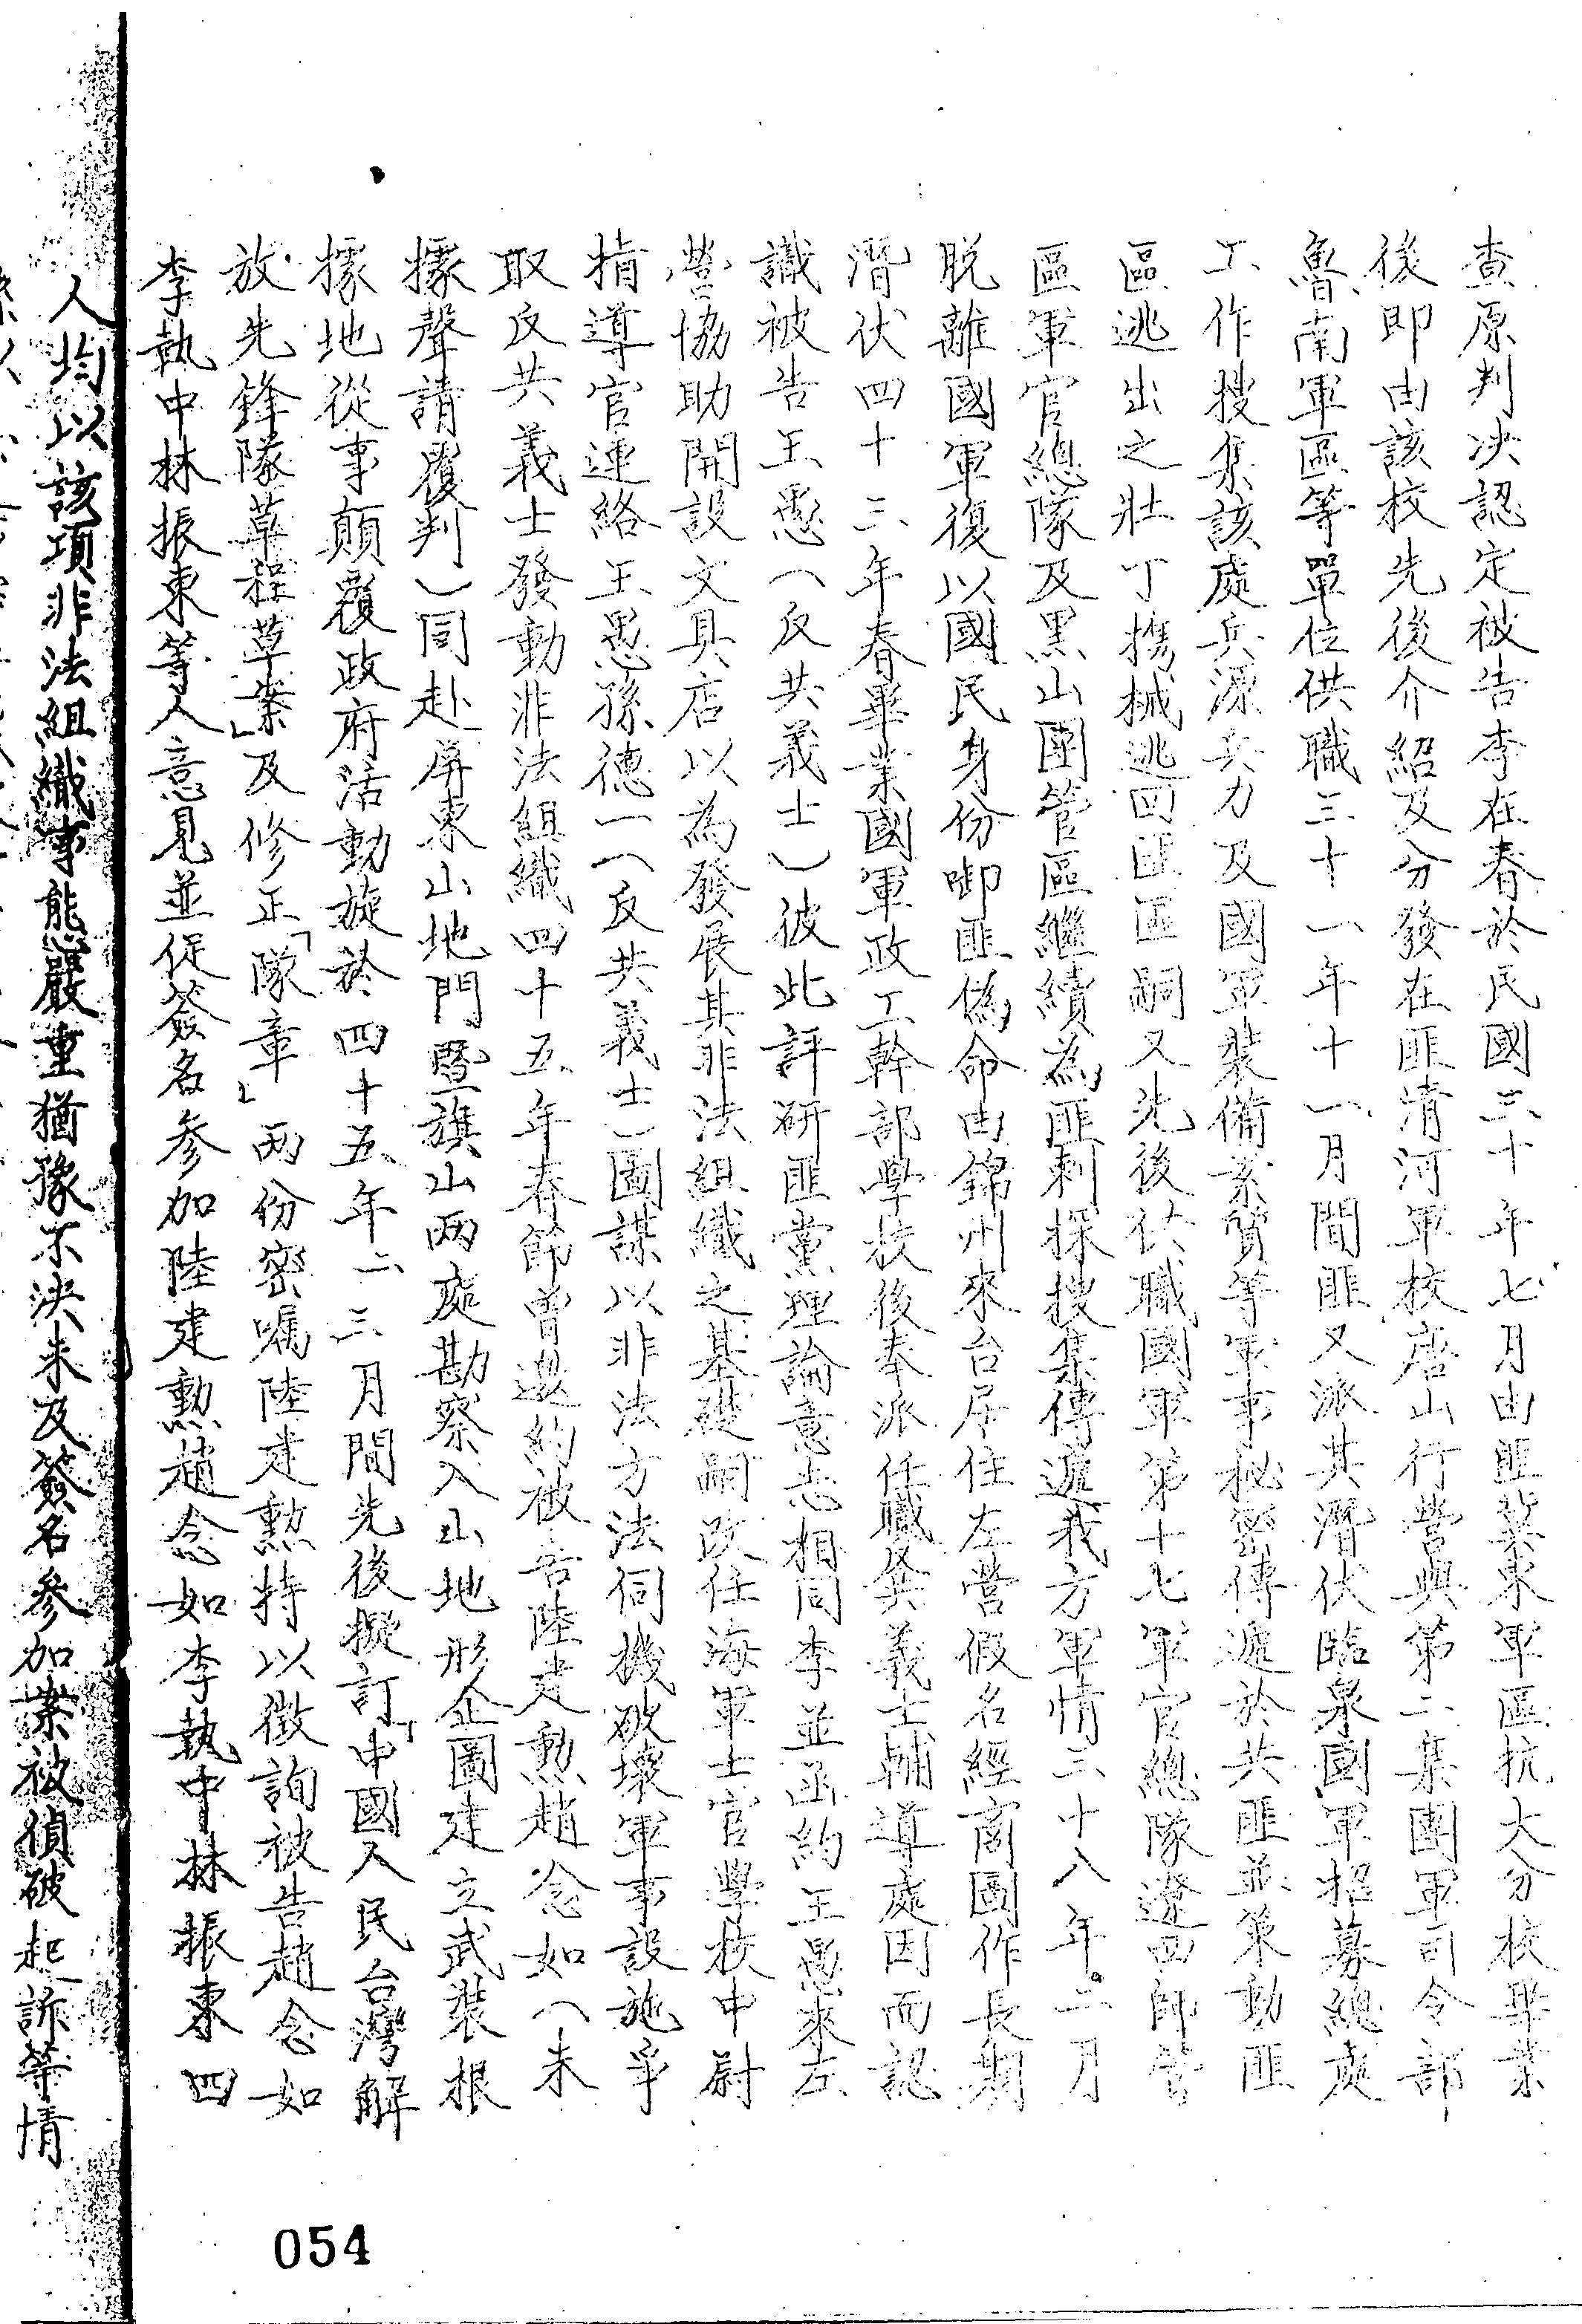 查原判決認定被告李在春於民國三十年七月由匪冀東軍區抗大分校畢業
後即由該校先後介紹及分發在匪清河軍校唐山行營與第二集團軍司令部
魯南軍區等單位供職三十一年十一月間匪又派其潛伏臨泉國軍招募總處
工作搜集該處兵源兵力及國軍裝備素質等軍事秘密傳遞於共匪並策動匪
區逃出之壯丁携械逃回匪區嗣又先後伏職國軍第十七軍官總隊遼西師管
區軍官總隊及黑山團管區繼續為匪刺探搜集傳遞我方軍情三十八年。二月
脫離國軍復以國民身份啣匪偽命由錦州來台居住左營假名經商圖作長期
潛伏四十三年春畢業國軍政工幹部學校後奉派任職義士輔導處因而認
識被告王愚（反共義士）彼此評研匪黨理論意志相同李並函約王愚來左
營協助開設文具店以為發展其非法組織之基礎嗣改任海軍士官學校中尉
指導官連絡王愚孫德一（反共義士）圖謀以非法方法伺機破壞軍事設施爭
取反共義士發動非法組織四十五年春節曾邀約被告陸建勳趙念如（未
據聲請覆判）同赴屏東山地門暨旗山两處勘察入山地形企圖建立武裝根
據地從事顛覆政府活動旋於四十五年二、三月間先後擬訂「中國人民台灣解
放先鋒隊草程草案」及修正「隊章」两份密嘱陸建勳持以徵詢被告趙念如
李執中林振東等人意見並促簽名參加陸建勳趙念如李執中林振東四
人均以該項非法組織事態嚴重猶豫不決未及簽名參加案被偵破起訴等情
054